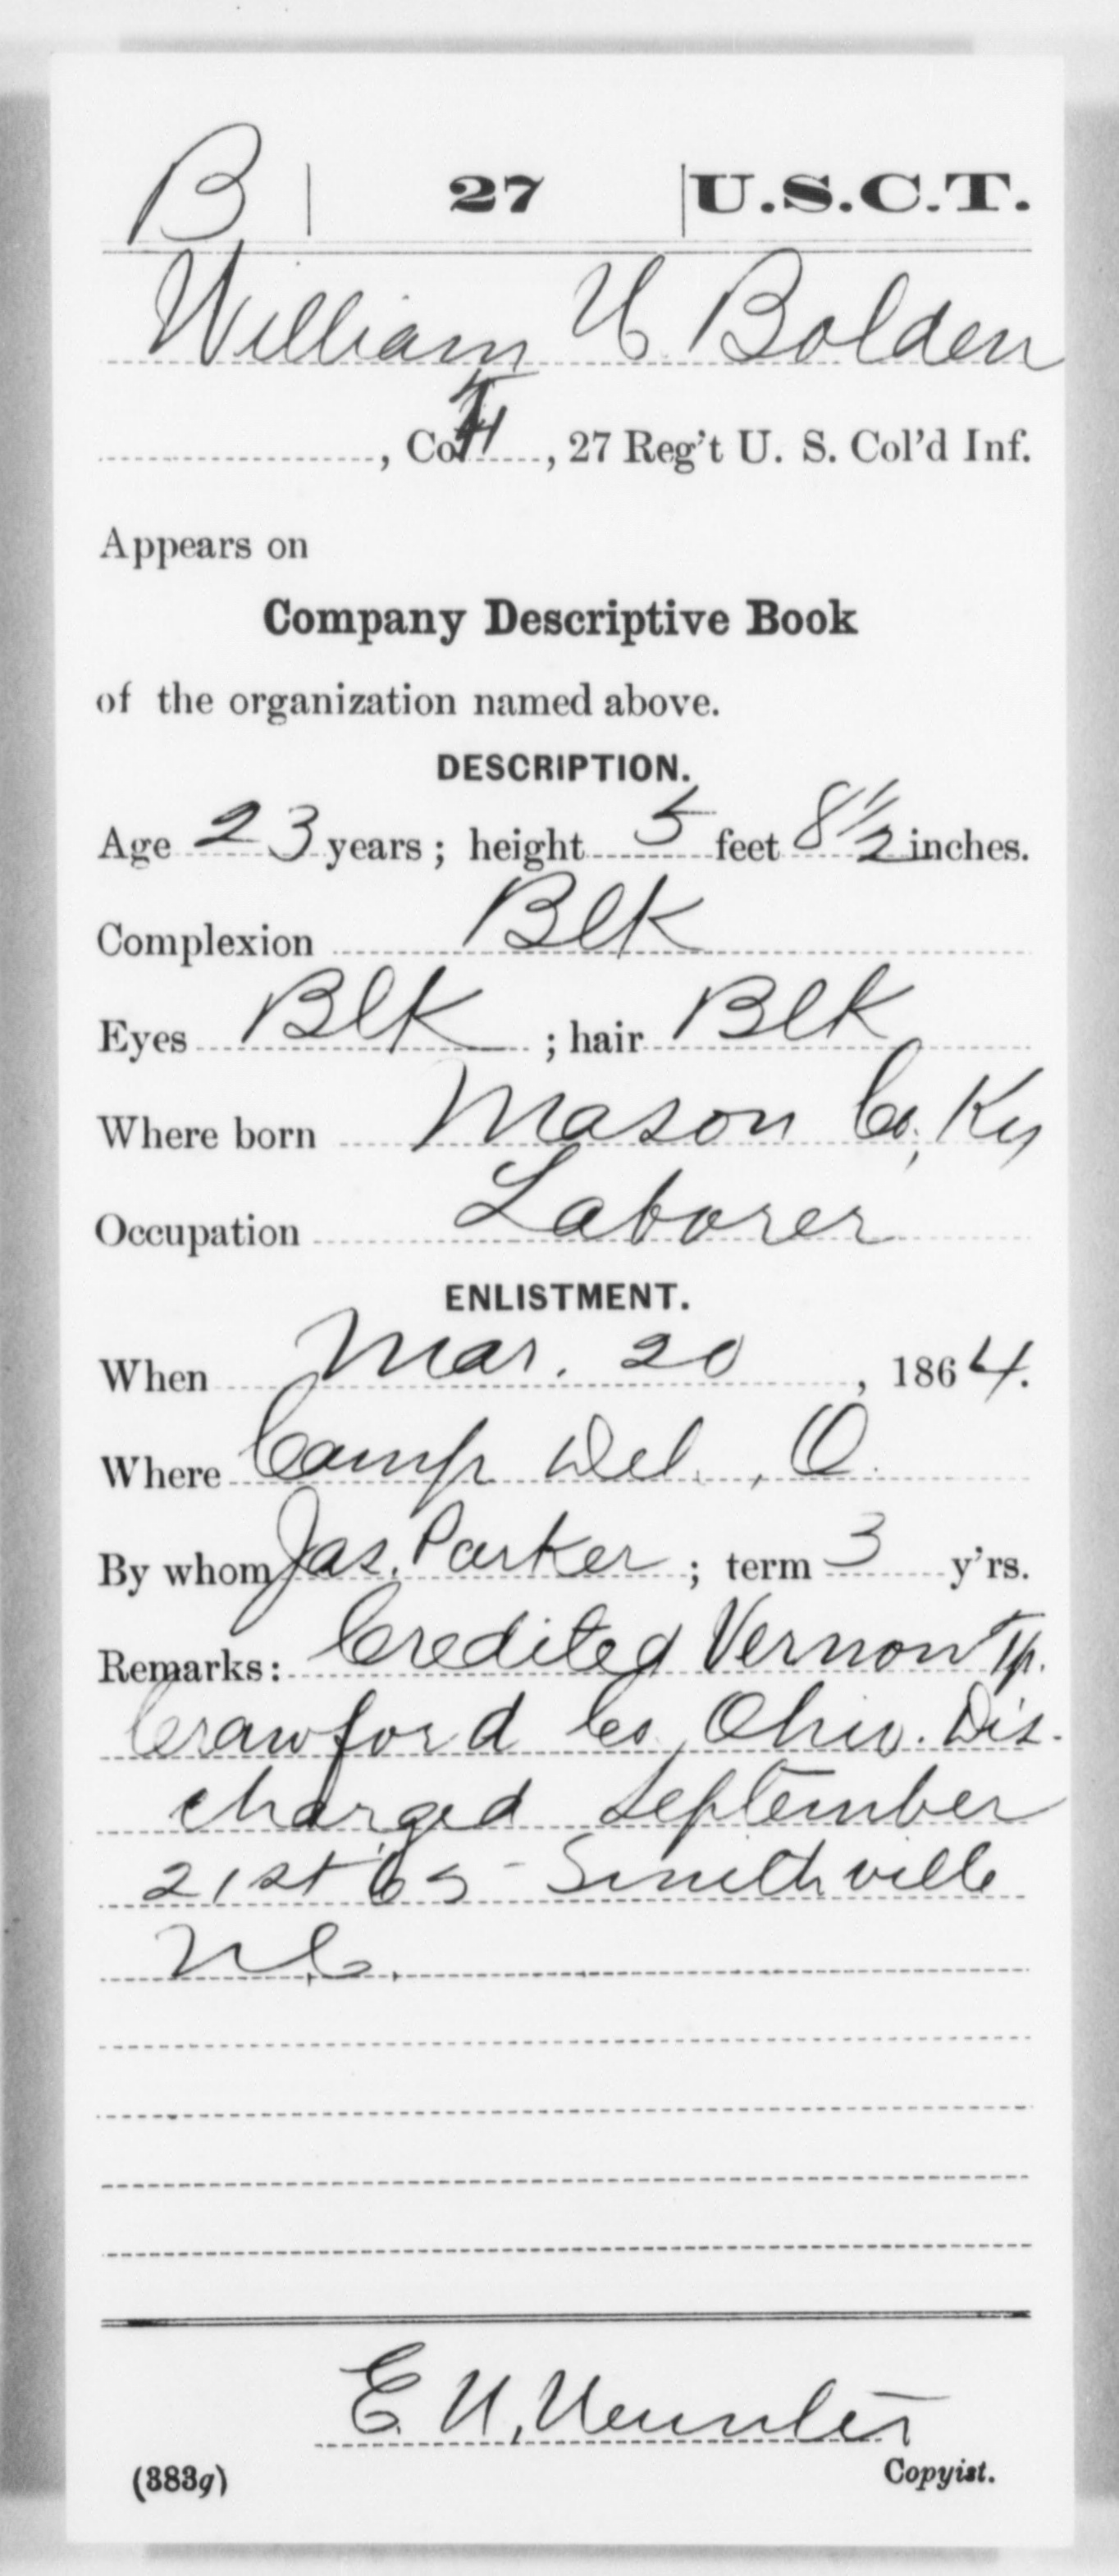 B | 27 | U.S.C.T.
William H Bolden
, Co. H, 27 Reg't U. S. Col'd Inf.
Appears on
Company Descriptive Book
of the organization named above.
DESCRIPTION.
Age 23 years; height 5 feet 8 1/2 inches.
Complexion Blk
Eyes Blk; hair Blk
Where born Mason Co, Ky
Occupation Laborer
ENLISTMENT.
When Mar. 20, 1864.
Where Camp Del., O.
By whom Jas. Parker; term 3 y'rs.
Remarks: Credited Vernon Tp.
Crawford Co, Ohio. Dis-
charged September
21st 65 - Smithville
N.C.
E. U.
(383g) Copyist.